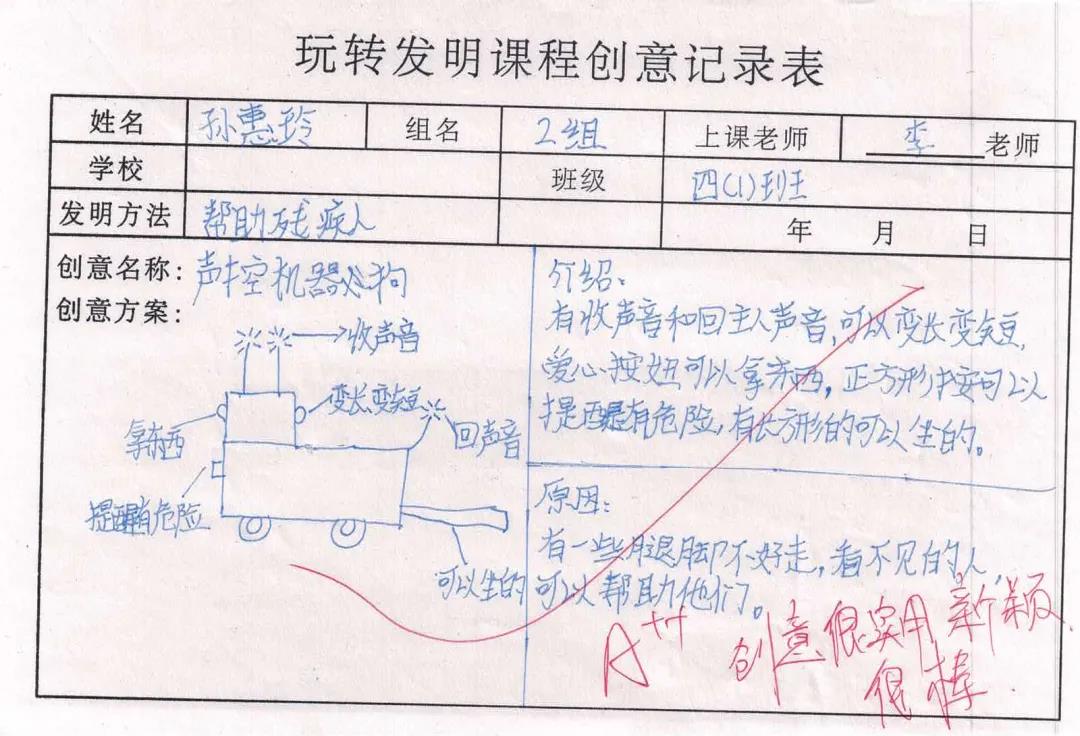 玩转发明课程创意记录表
姓名 孙惠玲 组名 2组 上课老师 李 老师
学校 班级 四(1)班
发明方法 帮助残疾人 年 月 日
创意名称: 声控机器心狗
创意方案:
收声音
变长变短
拿东西
回声音
提醒有危险
可以坐的
介绍:
有收声音和回主人声音,可以变长变短,
爱心按妞可以拿东西,正方形按可以
提醒有危险,有长方形的可以坐的。
原因:
有一些腿脚不好走,看不见的人,
可以帮助他们。
A++ 创意很实用新颖.
很棒.